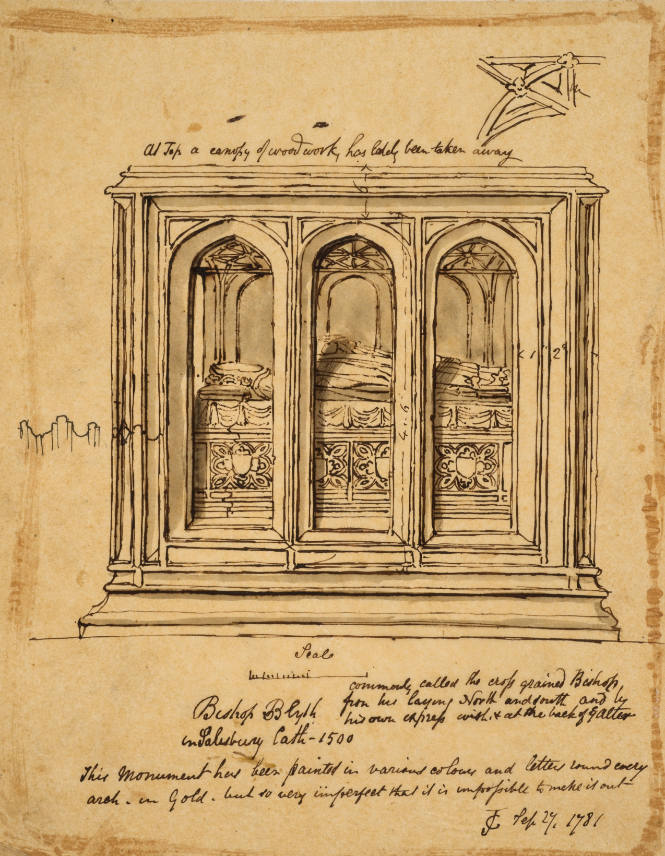 At Top a canopy of wood work, has lately been taken away
6
1 2
4.6
Scale
commonly called the cross grained Bishop,
from his laying North and South and by
his own express wish, & at the back of ye Alter
Bishop Blyth
in Salesbury Cath - 1500
This Monument has been painted in various colours and letters round every
arch - in Gold - but so very imperfect that it is impossible to make it out
JC Sep 27, 1781